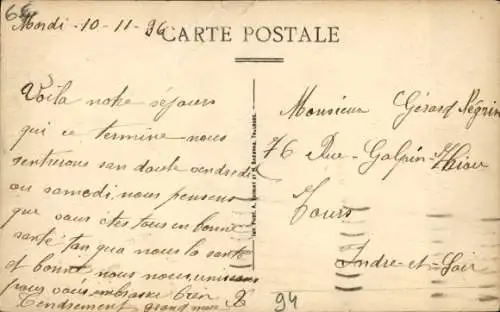 66
Mardi 10-11-36
CARTE POSTALE
Voila notre séjours
qui ce termine nous
rentrerons san doute vendredi
ou samedi nous pensons
que vous êtes tous en bonne
santé tan qua nous la santé
et bonne nous nous
pour vous embrasser bien
Tendrement grand mère
Monsieur Gérard Négrin
76 Rue Galpin-Thiou
Tours
Indre-et-Loir
94